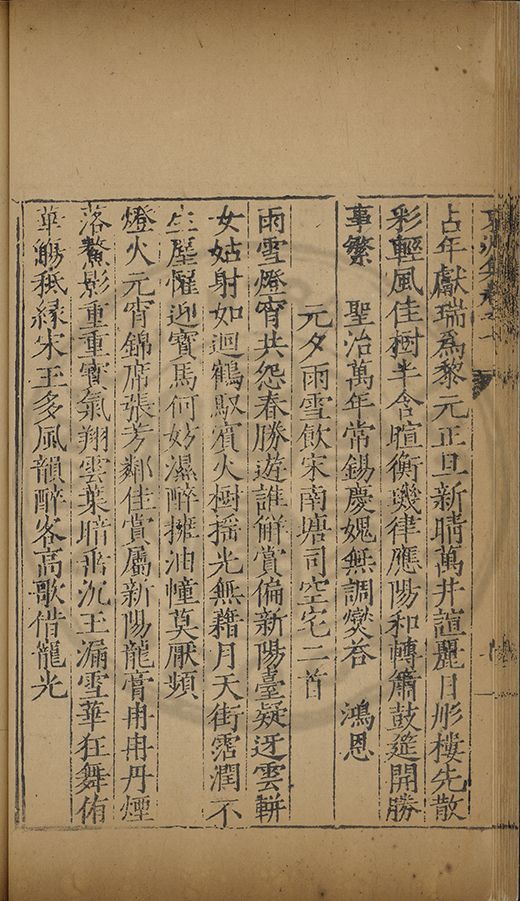 占年獻瑞為黎元正旦新晴萬井諠麗日彤樓先散
彩輕風佳樹半含暄衡璣律應陽和轉簫鼓筵開勝
事繁　聖治萬年常錫慶媿無調爕荅　鴻恩
元夕雨雪飲宋南塘司空宅二首
雨雪燈宵共怨春勝遊誰解賞偏新陽臺疑迓雲軿
女姑射如迴鶴馭賓火樹揺光無藉月天街霑潤不
生塵懽迎寶馬何妨濕醉擁油幢莫厭頻
燈火元宵錦席張芳鄰佳賞屬新陽龍膏冉冉丹煙
落鰲影重重寳氣翔雲葉暗飛沉玉漏雪華狂舞侑
華觴秪緣宋玉多風韻醉客高歌借龍光